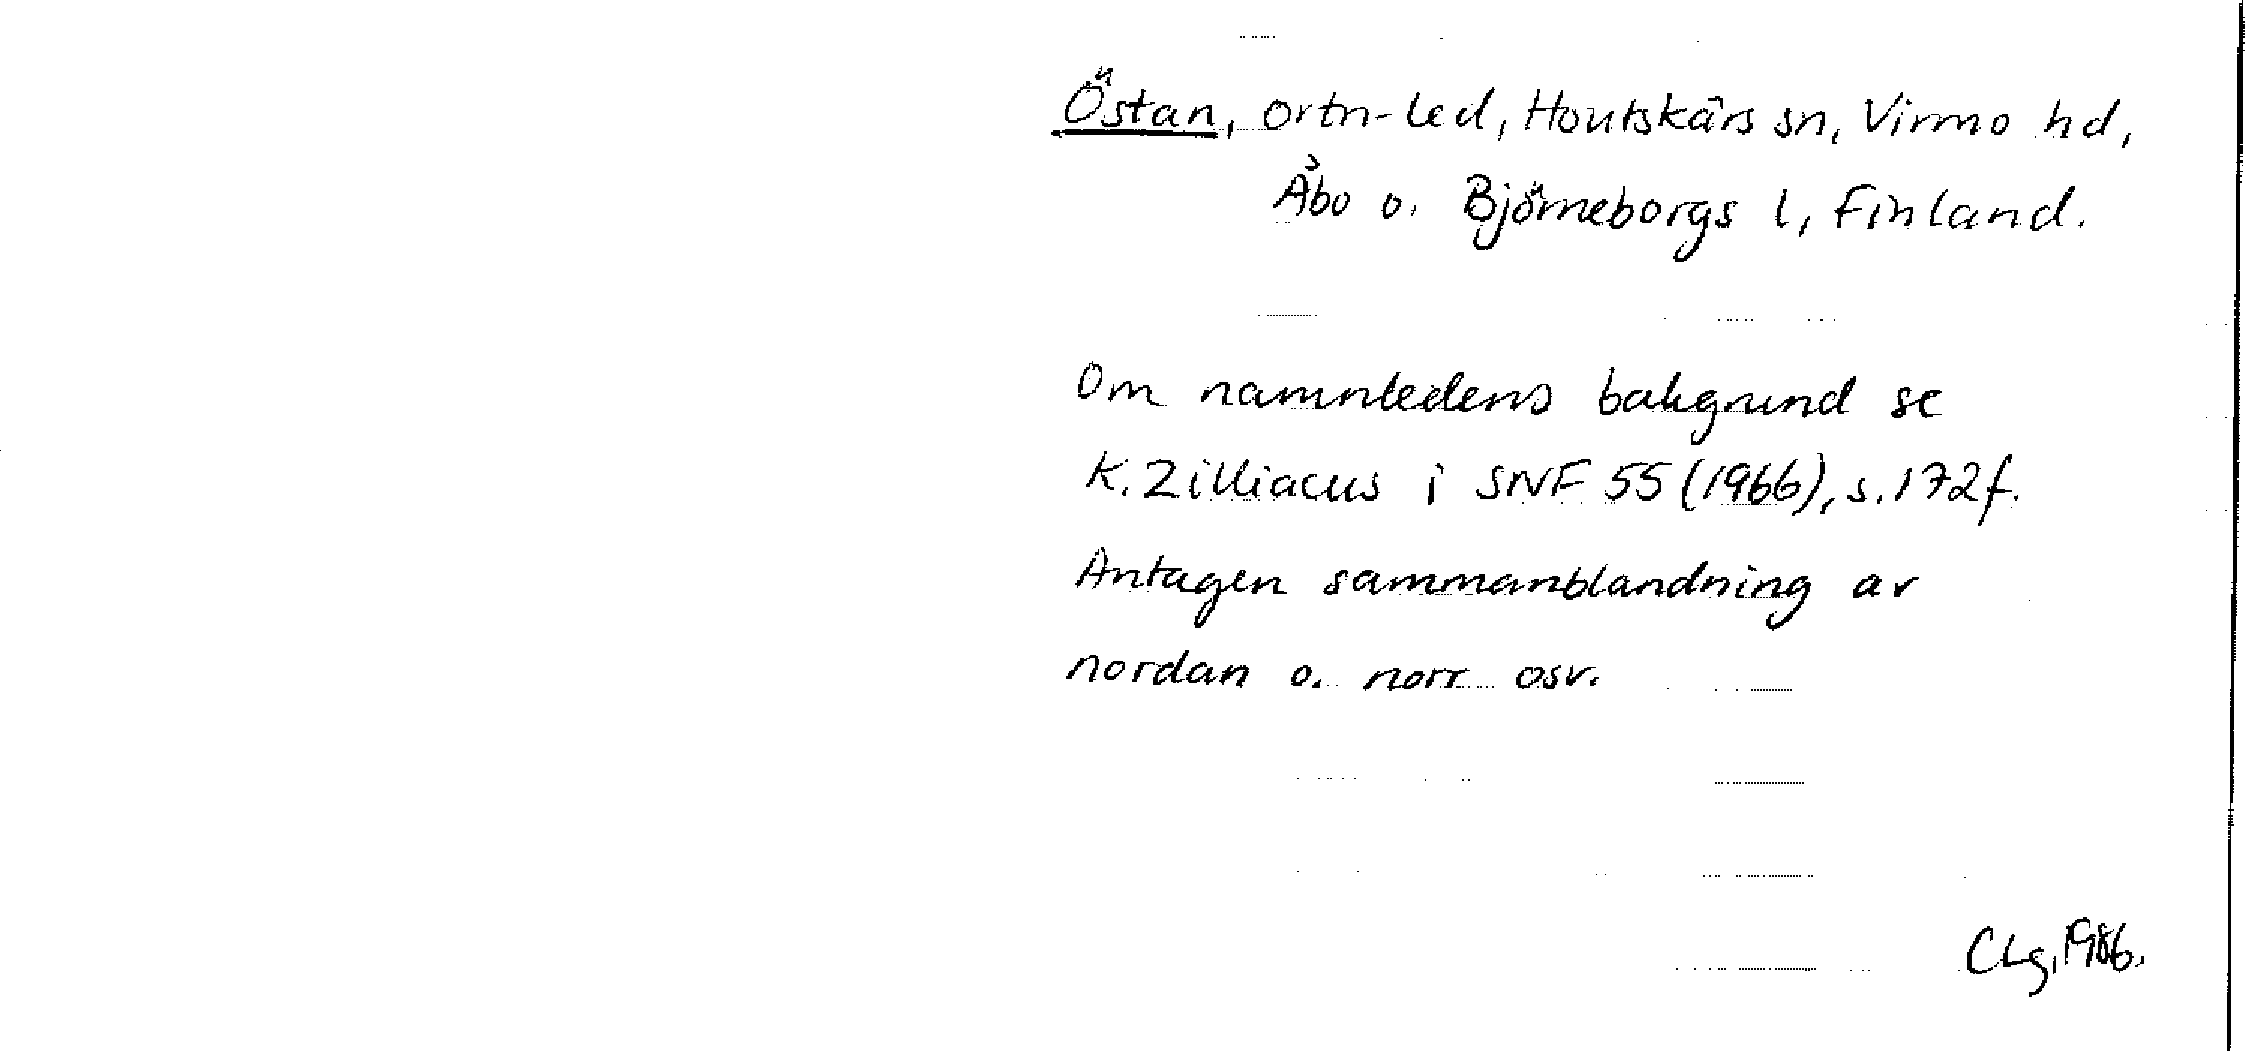 Östan, ortn-led, Houtskärs sn, Virmo hd,
Åbo o. Björneborgs l, Finland.
Om namnledens bakgrund se
K. Zilliacus i SNF 55 (1966), s. 172 f.
Antagen sammanblandning av
nordan o. norr osv.
CLg, 1986.